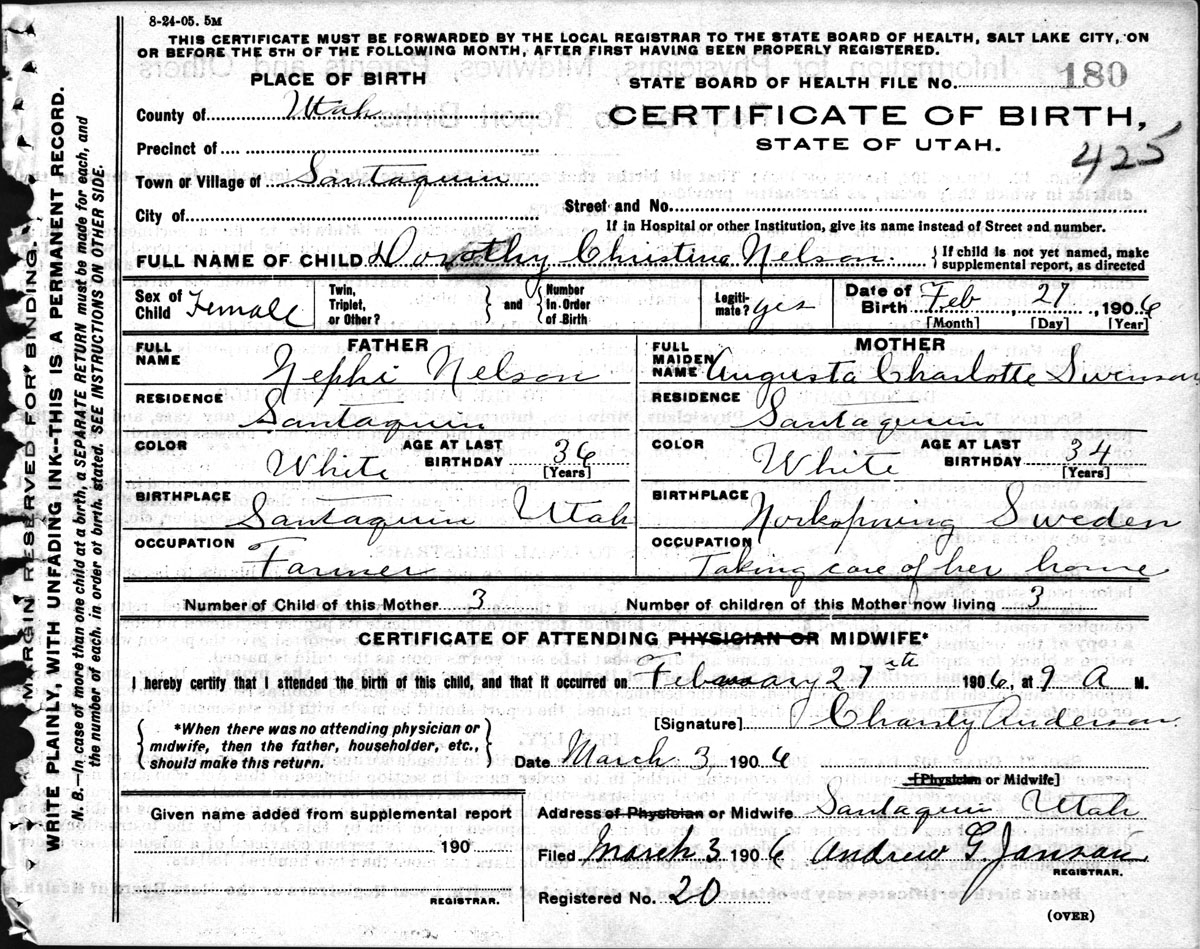 8-24-05. 5M
THIS CERTIFICATE MUST BE FORWARDED BY THE LOCAL REGISTRAR TO THE STATE BOARD OF HEALTH, SALT LAKE CITY, ON
OR BEFORE THE 5TH OF THE FOLLOWING MONTH, AFTER FIRST HAVING BEEN PROPERLY REGISTERED.
PLACE OF BIRTH
STATE BOARD OF HEALTH FILE No. 180
County of Utah
CERTIFICATE OF BIRTH,
Precinct of
STATE OF UTAH.
425
Town or Village of Santaquin
City of
Street and No.
If in Hospital or other Institution, give its name instead of Street and number.
FULL NAME OF CHILD Dorothy Christina Nelson. {If child is not yet named, make
supplemental report, as directed
Sex of Child Female
Twin, Triplet, or Other? } and { Number In Order of Birth
Legiti-mate? yes
Date of Birth Feb, 27, 1906
[Month] [Day] [Year]
FATHER
FULL NAME Nephi Nelson
RESIDENCE Santaquin
COLOR White AGE AT LAST BIRTHDAY 36 [Years]
BIRTHPLACE Santaquin Utah
OCCUPATION Farmer
MOTHER
FULL MAIDEN NAME Augusta Charlotte Swenson
RESIDENCE Santaquin
COLOR White AGE AT LAST BIRTHDAY 34 [Years]
BIRTHPLACE Norkopning Sweden
OCCUPATION Taking care of her home
Number of Child of this Mother 3 Number of children of this Mother now living 3
CERTIFICATE OF ATTENDING PHYSICIAN OR MIDWIFE*
I hereby certify that I attended the birth of this child, and that it occurred on February 27th 1906, at 9 A M.
{*When there was no attending physician or
midwife, then the father, householder, etc.,
should make this return.}
[Signature] Charsty Anderson
Date March 3, 1906
[Physician or Midwife]
Given name added from supplemental report
190
REGISTRAR.
Address of Physician or Midwife Santaquin Utah
Filed March 3 1906 Andrew G. Janson
REGISTRAR.
Registered No. 20
(OVER)
MARGIN RESERVED FOR BINDING.
WRITE PLAINLY, WITH UNFADING INK--THIS IS A PERMANENT RECORD.
N. B.—In case of more than one child at a birth, a SEPARATE RETURN must be made for each, and
the number of each, in order of birth, stated. SEE INSTRUCTIONS ON OTHER SIDE.